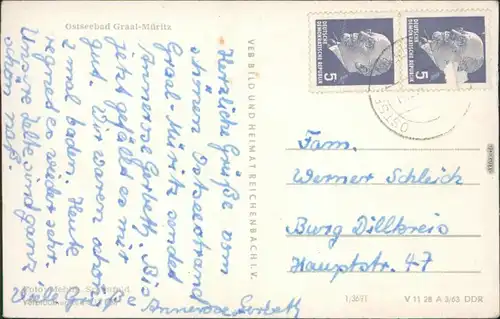 Ostseebad Graal-Müritz
Herzliche Grüße vom
schönen Ostseestrand
Graal-Müritz sendet
Annerose Gerbeth. Bis
jetzt gefällt es mir
gut. Wir waren schon
2 mal baden. Heute
regnet es wieder sehr.
Unsere Zelte sind ganz
schon naß.
Viele Grüße Annerose Gerbeth
VEB BILD UND HEIMAT REICHENBACH I. V.
DEUTSCHE
DEMOKRATISCHE REPUBLIK
5
DEUTSCHE
DEMOKRATISCHE REPUBLIK
5
OSTSEE
Fam.
Werner Schleich
Burg Dillkreis
Hauptstr. 47
V 11 28 A 3/63 DDR